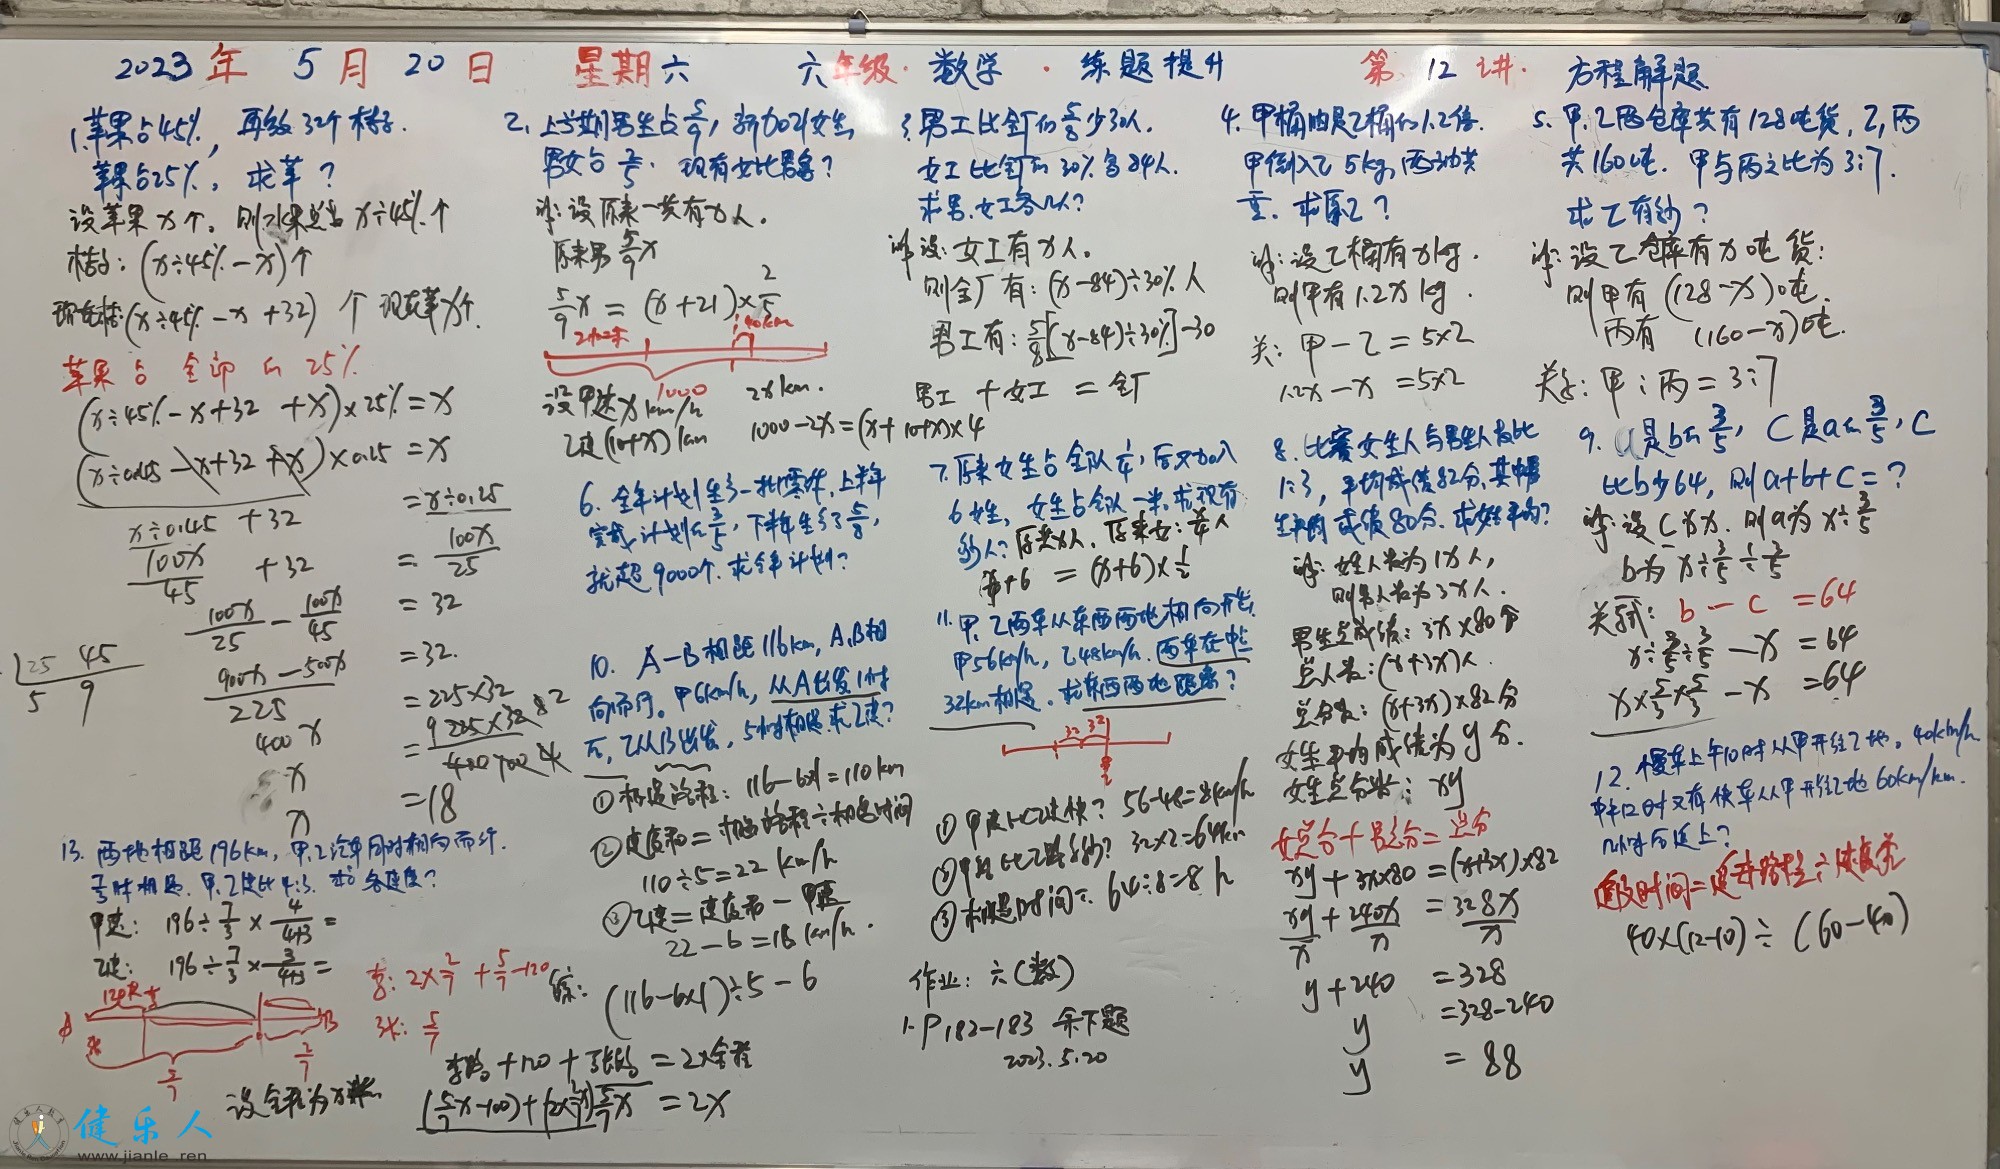 2023年 5月 20日 星期六 六年级·数学·练题提升 第12讲· 方程解题
1.苹果占45%, 再放32个桔子.
苹果占25%。求苹?
设苹果x个。则水果总为x÷45%个
桔子:(x÷45%-x)个
现在桔:(x÷45%-x+32)个 现在苹x个.
苹果占全部的25%
(x÷45%-x+32+x)×25%=x
(x÷0.45-x+32+x)×0.25=x
x÷0.45+32=x÷0.25
100x/45+32=100x/25
100x/25-100x/45=32
(900x-500x)/225=32.
400x=225×32
x=
x=18
25 45
5 9
2.上学期男生占5/9, 新加21女生,
男女占2/5. 现有女比男多?
设原来一共有x人.
原来男5/9x
5/9x=(x+21)×2/5
40km
1000
设甲速x km/h 2x km.
乙速(10+x)km 1000-2x=(x+10+x)×4
3.男工比全厂的5/8少30人.
女工比全厂的30%多84人.
求男.女工各几人?
设:女工有x人.
则全厂有:(x-84)÷30%人
男工有:5/8[(x-84)÷30%]-30
男工+女工=全厂
4.甲桶的是乙桶的1.2倍.
甲倒入乙5kg,两桶共
重.求原乙?
设乙桶有x kg.
则甲有1.2x kg.
关:甲-乙=5×2
1.2x-x=5×2
5.甲.乙两仓库共有128吨货,乙,丙
共160吨. 甲与丙之比为3:7.
求乙有多少?
设乙仓库有x吨货:
则甲有(128-x)吨.
丙有(160-x)吨.
关系:甲:丙=3:7
6.全年计划生产一批零件.上半年
完成计划的3/5,下半年生产了5/8,
就超9000个.求全年计划?
7.原来女生占全队1/4,后又加入
6女生,女生占全队一半.求现有
多少人?原共x人.原来女:x/4人
x/4+6=(x+6)×1/2
8.比赛女生人与男生人数比
1:3,平均成绩82分,其中男
生平均成绩80分.求女生平均?
女生人数为1x人,
则男人数为3x人.
男生总成绩:3x×80个
总人数:(x+3x)人.
总分数:(x+3x)×82分
女生平均成绩为y分.
女生总分数:xy
女总分+男总分=总分
xy+3x×80=(x+3x)×82
xy/x+240x/x=328x/x
y+240=328
y=328-240
y=88
9.a是b的3/5,c是a的3/5,c
比b少64,则a+b+c=?
设c为x.则a为x÷3/5
b为x÷3/5÷3/5
关系:b-c=64
x÷3/5÷3/5-x=64
x×5/3×5/3-x=64
10.A-B相距116km,A.B相
向而行。甲6km/h,从A出发1小时
后,乙从B出发,5小时相遇.求乙速?
①相遇路程:116-6×1=110km
②速度和=相遇路程÷相遇时间
110÷5=22km/h
③乙速=速度和-甲速
22-6=16km/h.
综:(116-6×1)÷5-6
11.甲.乙两车从东西两地相向开出.
甲56km/h,乙48km/h.两车在中点
32km相遇.求东西两地距离?
32 32
①甲速比乙速快?56-48=8km/h
②甲路比乙路多多少?32×2=64km
③相遇时间:64÷8=8h
作业:六(数)
1.P182-183 余下题
2023.5.20
12.慢车上午10时从甲开往乙地。40km/h
中午12时又有快车从甲开往乙地60km/km.
几小时后追上?
追及时间=追及路程÷速度差
40×(12-10)÷(60-40)
13.两地相距196km,甲.乙汽车同时相向而行.
7/3时相遇.甲.乙速比4:3.求各速度?
甲速:196÷7/3×4/(4+3)=
乙速:196÷7/3×3/(4+3)=
A 120米 B
5/7 2/7
李:2×2/7+5/7-120
张:5/7
设全程为x米
李路+120+张路=2×全程
=2x
健乐人
www.jianle.ren